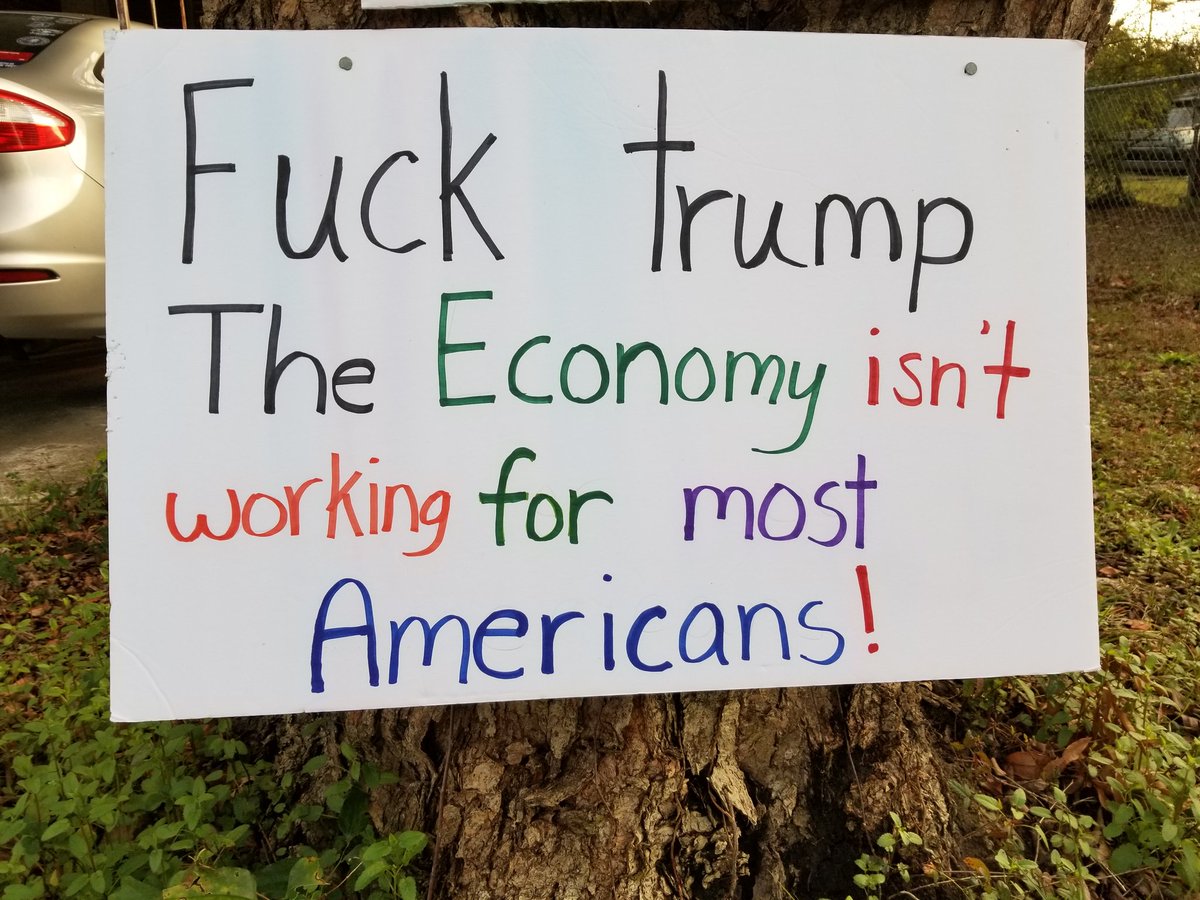 Fuck trump
The Economy isn't
working for most
Americans!